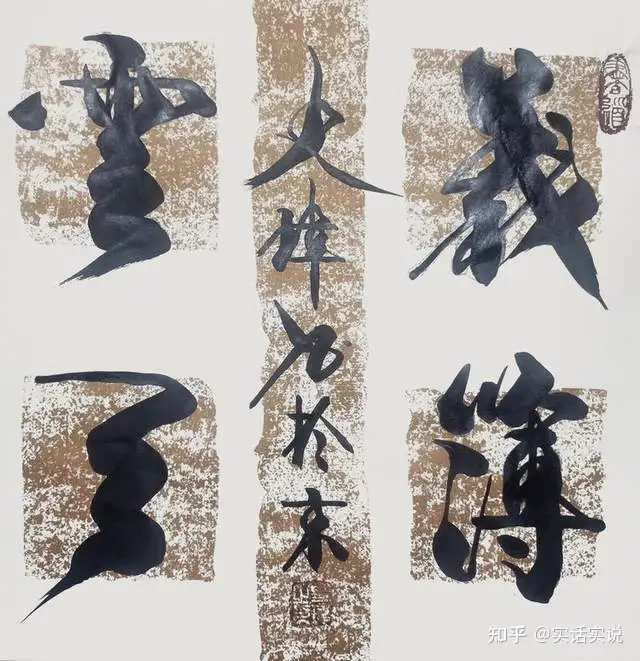 義薄
雲天
史书於京
知乎 @实话实说